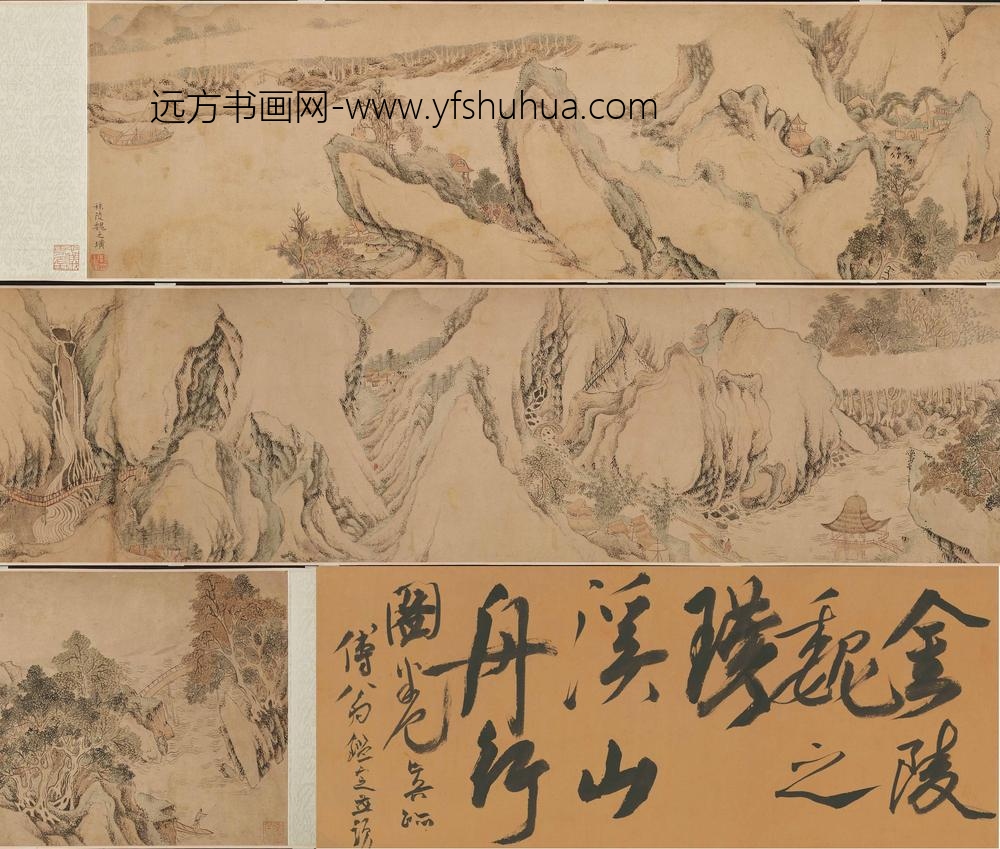 远方书画网-www.yfshuhua.com
秣陵魏之璜
金陵
魏之
璜
溪山
舟行
圖卷真迹
鑑定並題